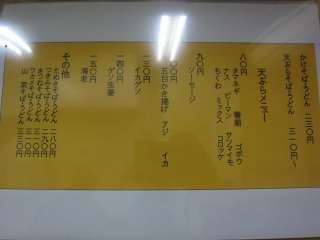 かけそば・うどん 二三〇円
天ぷらそば・うどん 三一〇円〜
天ぷらメニュー
八〇円
タマネギ 春菊 ゴボウ
ナス ピーマン サツマイモ
ちくわ ミックス コロッケ
九〇円
ソーセージ
五目かき揚げ アジ イカ
一三〇円
イカゲソ
一四〇円
ゲソ生姜
一五〇円
海老
その他
たぬきそば・うどん 二八〇円
つきみそば・うどん 二九〇円
きつねそば・うどん 三一〇円
ワカメそば・うどん 三一〇円
山菜そば・うどん 三三〇円